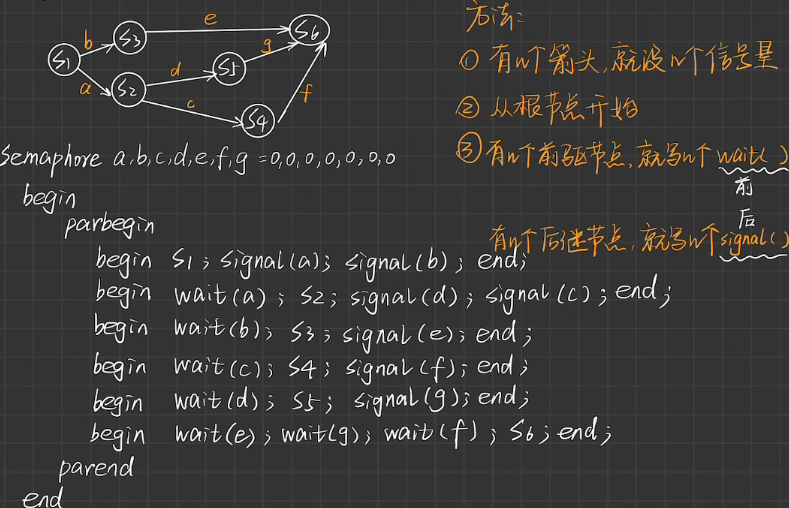 e
b
S3
S6
g
S1
d
S5
a
S2
c
f
S4
方法:
① 有n个箭头,就设n个信号量
② 从根节点开始
③ 有n个前驱节点,就写n个 wait( )
前
后
有n个后继节点,就写n个signal( )
Semaphore a,b,c,d,e,f,g =0,0,0,0,0,0,0
begin
parbegin
begin S1; signal(a); signal(b); end;
begin wait(a); S2; signal(d); signal(c); end;
begin wait(b); S3; signal(e); end;
begin wait(c); S4; signal(f); end;
begin wait(d); S5; signal(g); end;
begin wait(e); wait(g); wait(f); S6; end;
parend
end